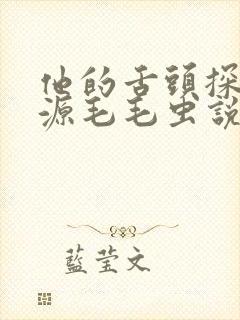 他的舌頭探
源毛毛虫說
藍莹文